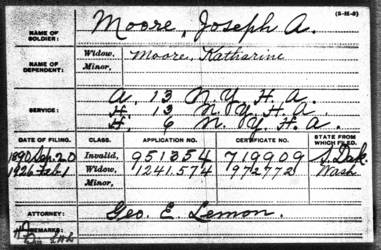 (3-11-9)
NAME OF SOLDIER: Moore, Joseph A.
NAME OF DEPENDENT: Widow, Moore, Katharine
Minor,
SERVICE: A. 13 N. Y. H. A.
H. 13 N. Y. H. A.
H. 6 N. Y. H. A.
DATE OF FILING. CLASS. APPLICATION NO. CERTIFICATE NO. STATE FROM WHICH FILED.
1890 Sep. 20 Invalid, 951354 719909 S. Dak.
1926 Feb 1 Widow, 1241.574 972772 Wash
Minor,
ATTORNEY: Geo. E. Lemon.
REMARKS: